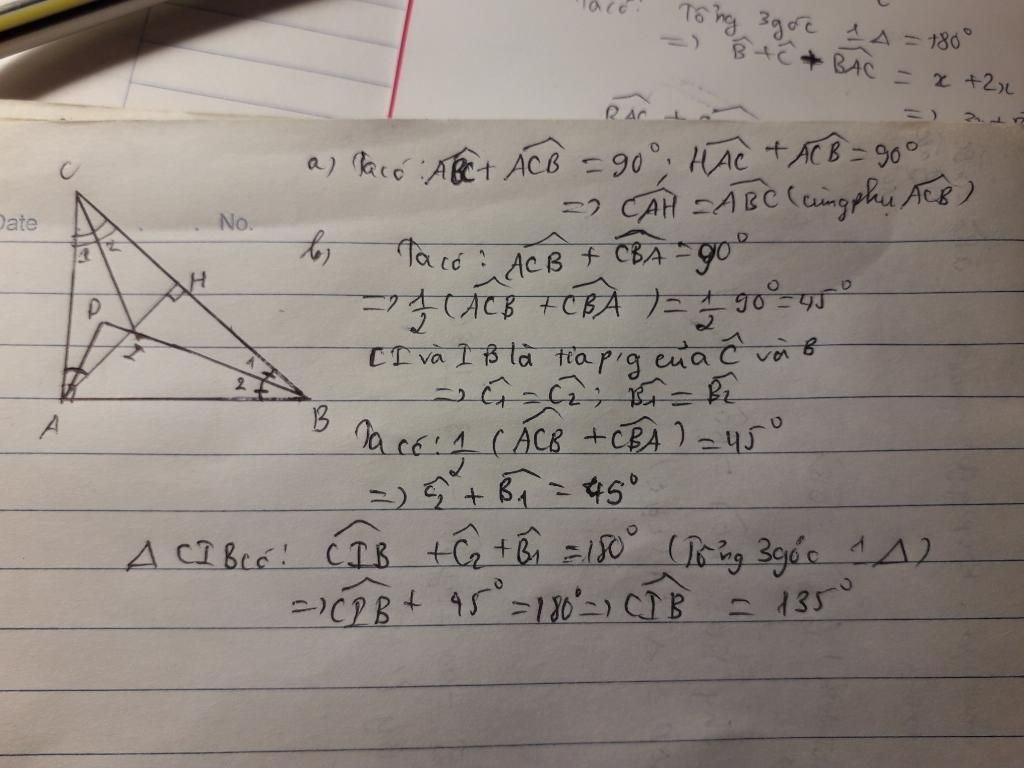 Ta có: Tổng 3 góc 1 Δ = 180°
=> B̂ + Ĉ + BAC^ = x + 2x
BAC^ +
=>
Date No.
C
1 2
H
D
I
1
2
A
B
a) Ta có: ABC^ + ACB^ = 90°; HAC^ + ACB^ = 90°
=> CAH^ = ABC^ (cùng phụ ACB^)
b) Ta có: ACB^ + CBA^ = 90°
=> 1/2 (ACB^ + CBA^) = 1/2 90° = 45°
CI và IB là tia p/g của Ĉ và B
=> Ĉ1 = Ĉ2; B̂1 = B̂2
Ta có: 1/2 (ACB^ + CBA^) = 45°
=> Ĉ2 + B̂1 = 45°
Δ CIB có: CIB^ + Ĉ2 + B̂1 = 180° (Tổng 3 góc 1 Δ)
=> CIB^ + 45° = 180° => CIB^ = 135°